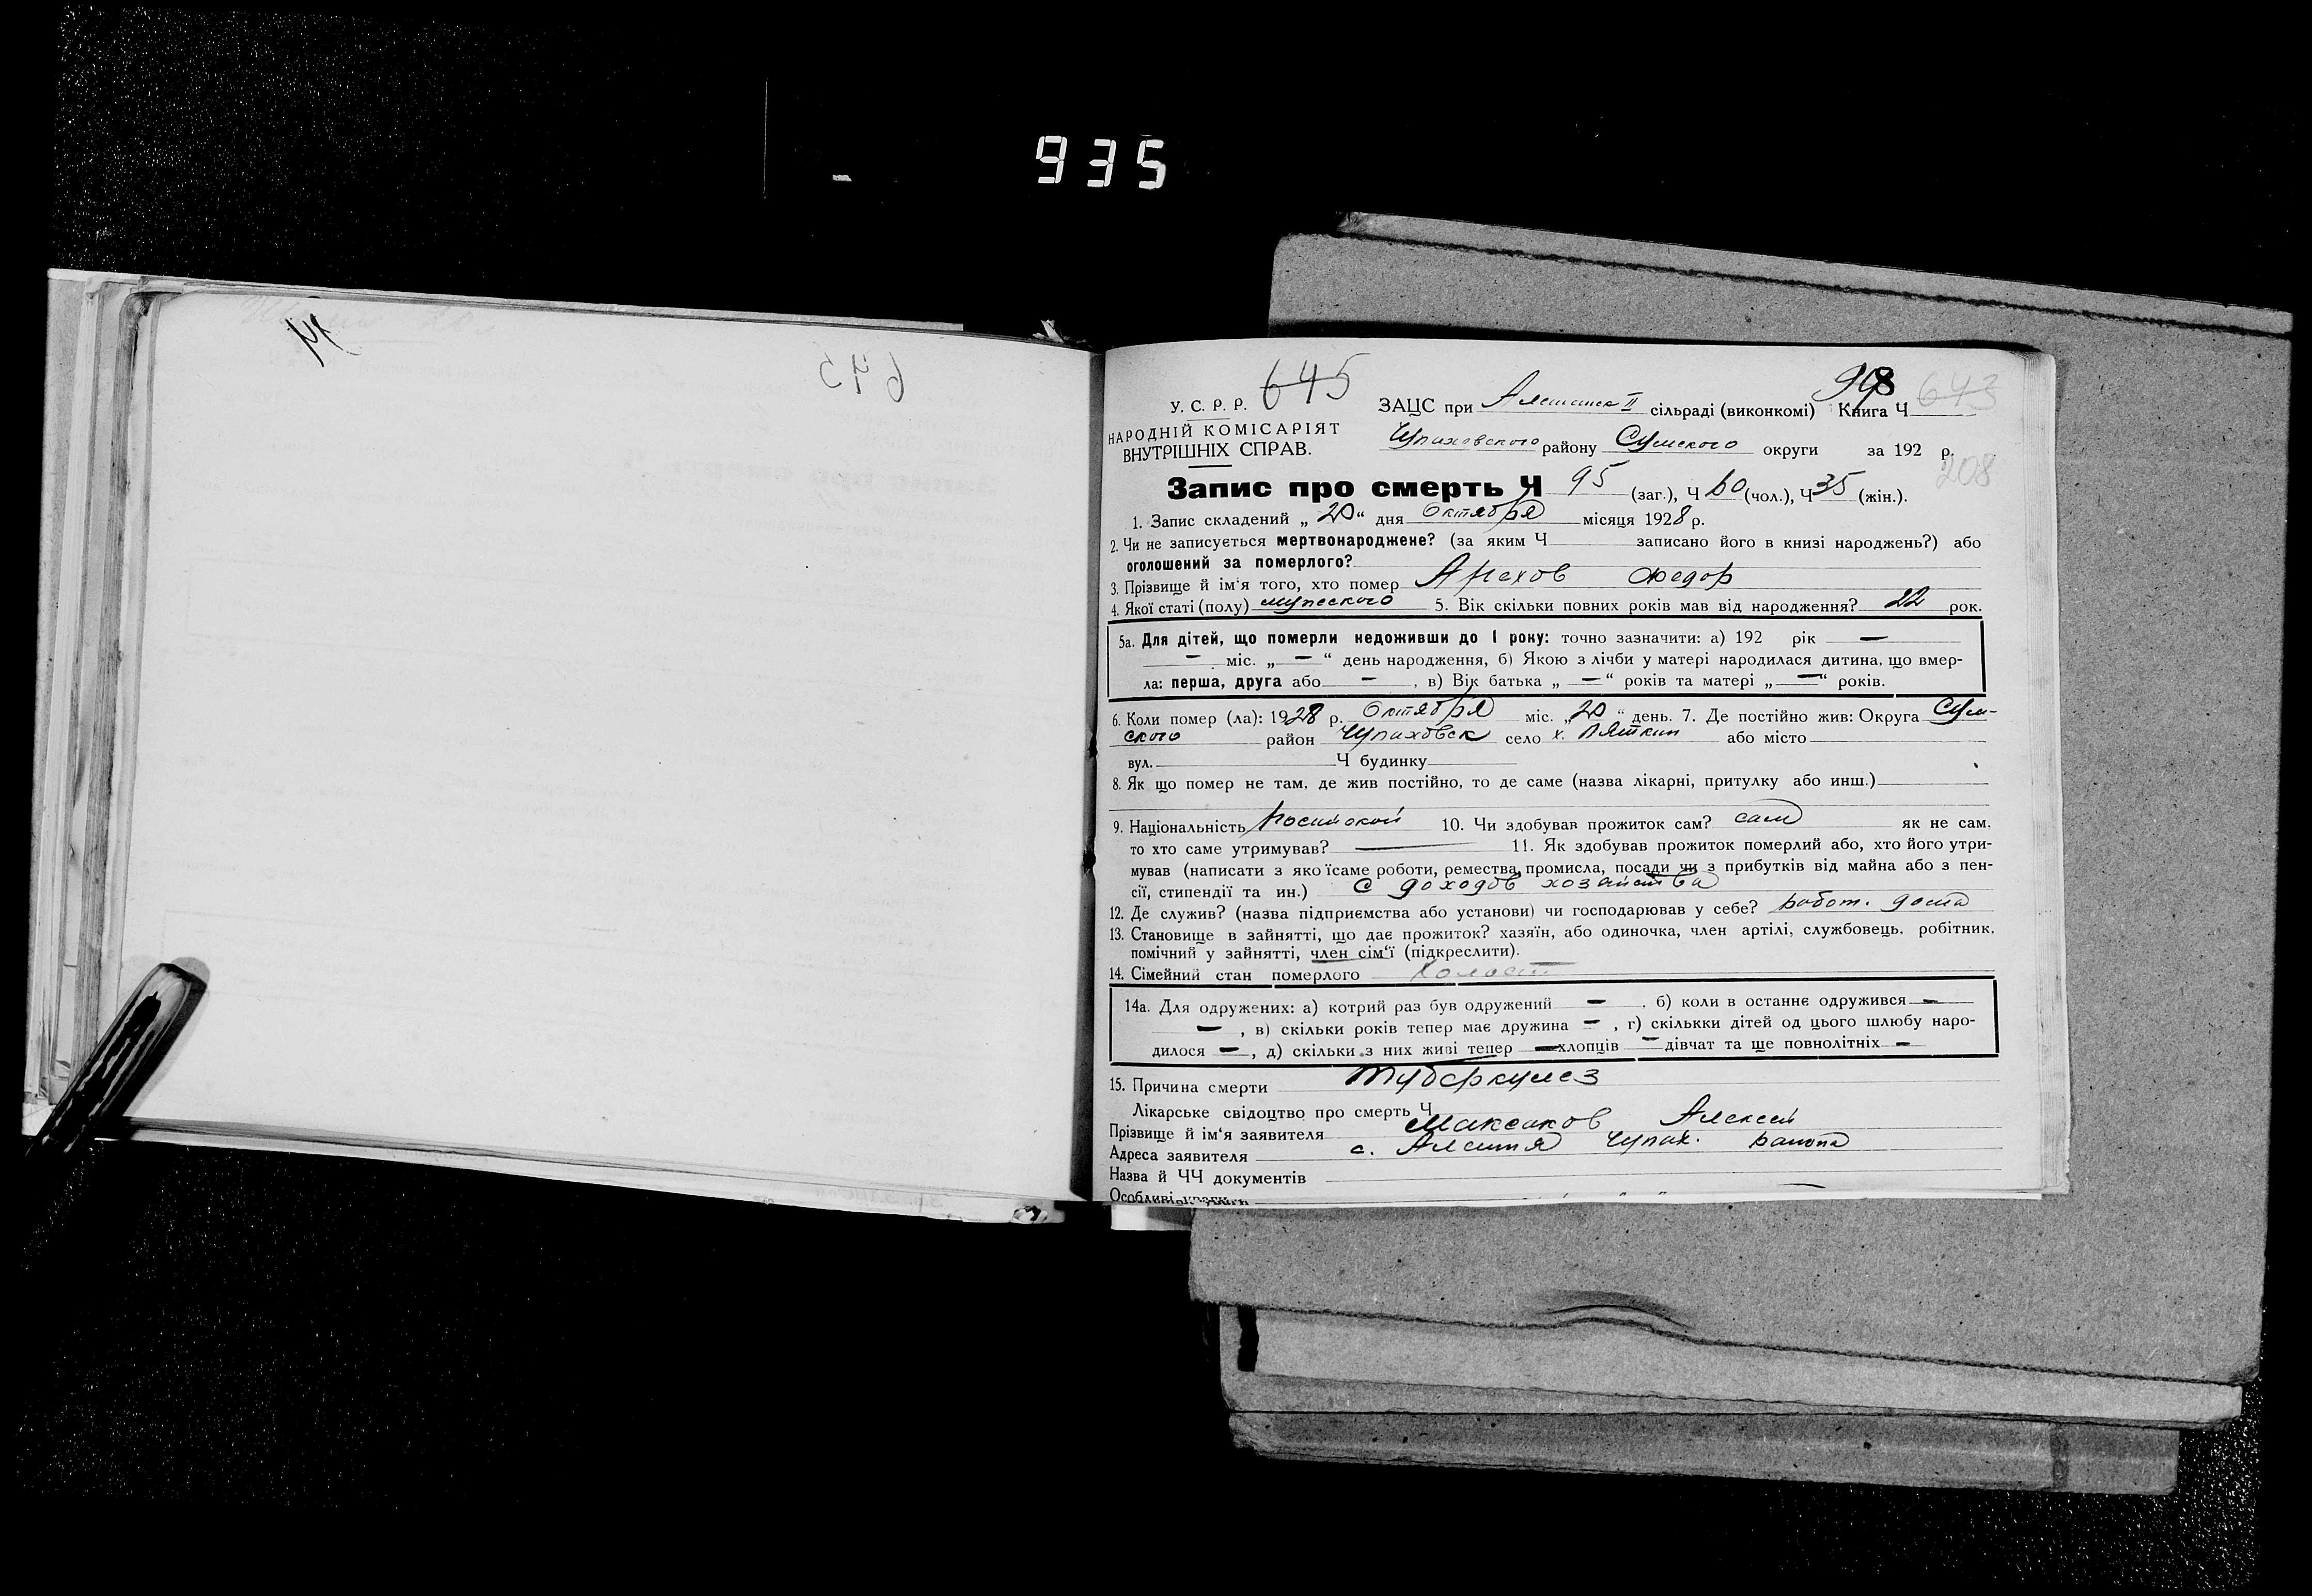 935
645
98
643
У. С. Р. Р.
ЗАЦС при II сільраді (виконкомі) Книга Ч
НАРОДНІЙ КОМІСАРІЯТ
ВНУТРІШНІХ СПРАВ.
району Сумского округи за 192 р.
208
Запис про смерть Ч 95 (заг.), Ч 60 (чол.), Ч 35 (жін.).
1. Запис складений „ 20 “ дня Октября місяця 1928 р.
2. Чи не записується мертвонароджене? (за яким Ч записано його в книзі народжень?) або
оголошений за померлого?
3. Прізвище й ім‘я того, хто помер Федор
4. Якої статі (полу) мужского 5. Вік скільки повних років мав від народження? 22 рок.
5а. Для дітей, що померли недоживши до 1 року: точно зазначити: а) 192 рік —
— міс. „ — “ день народження, б) Якою з лічби у матері народилася дитина, що вмер-
ла: перша, друга або — , в) Вік батька „ — “ років та матері „ — “ років.
6. Коли помер (ла): 1928 р. Октября міс. „ 20 “ день. 7. Де постійно жив: Округа Сум-
ского район село х. або місто
вул. Ч будинку
8. Як що помер не там, де жив постійно, то де саме (назва лікарні, притулку або инш.)
9. Національність 10. Чи здобував прожиток сам? сам як не сам,
то хто саме утримував? — 11. Як здобував прожиток померлий або, хто його утри-
мував (написати з якоїсаме роботи, ремества, промисла, посади чи з прибутків від майна або з пен-
сії, стипендії та ин.) С доходов хозяйства
12. Де служив? (назва підприємства або установи) чи господарював у себе? работ. дома
13. Становище в зайнятті, що дає прожиток? хазяїн, або одиночка, член артілі, службовець, робітник,
помічний у зайнятті, член сім‘ї (підкреслити).
14. Сімейний стан померлого Холост
14а. Для одружених: а) котрий раз був одружений — , б) коли в останнє одружився —
— , в) скільки років тепер має дружина — , г) скількки дітей од цього шлюбу наро-
дилося — , д) скільки з них живі тепер — хлопців — дівчат та ще повнолітніх —
15. Причина смерти Туберкулез
Лікарське свідоцтво про смерть Ч
Прізвище й ім‘я заявителя Максаков Алексей
Адреса заявителя с. района
Назва й ЧЧ документів
Особливі уваги